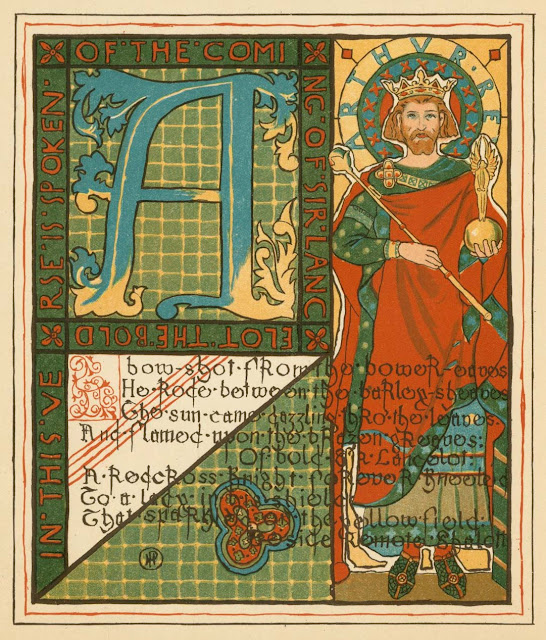 IN·THIS·VE
RSE·IS·SPOKEN·
OF·THE·COMI
NG·OF·SIR·LANC
ELOT·THE·BOLD
A
ARTHVR·RE
bow-shot·from·the·bower-eaves
He·rode·between·the·barley-sheaves
The·sun·came·dazzling·thro·the·leaves·
And·flamed·upon·the·brazen·greaves·
Of·bold·Sir·Lancelot·
A·Redcross·knight·forever·kneeled
To·a·lady·in·his·shield
That·sparkled·on·the·yellow·field·
Beside·remote·